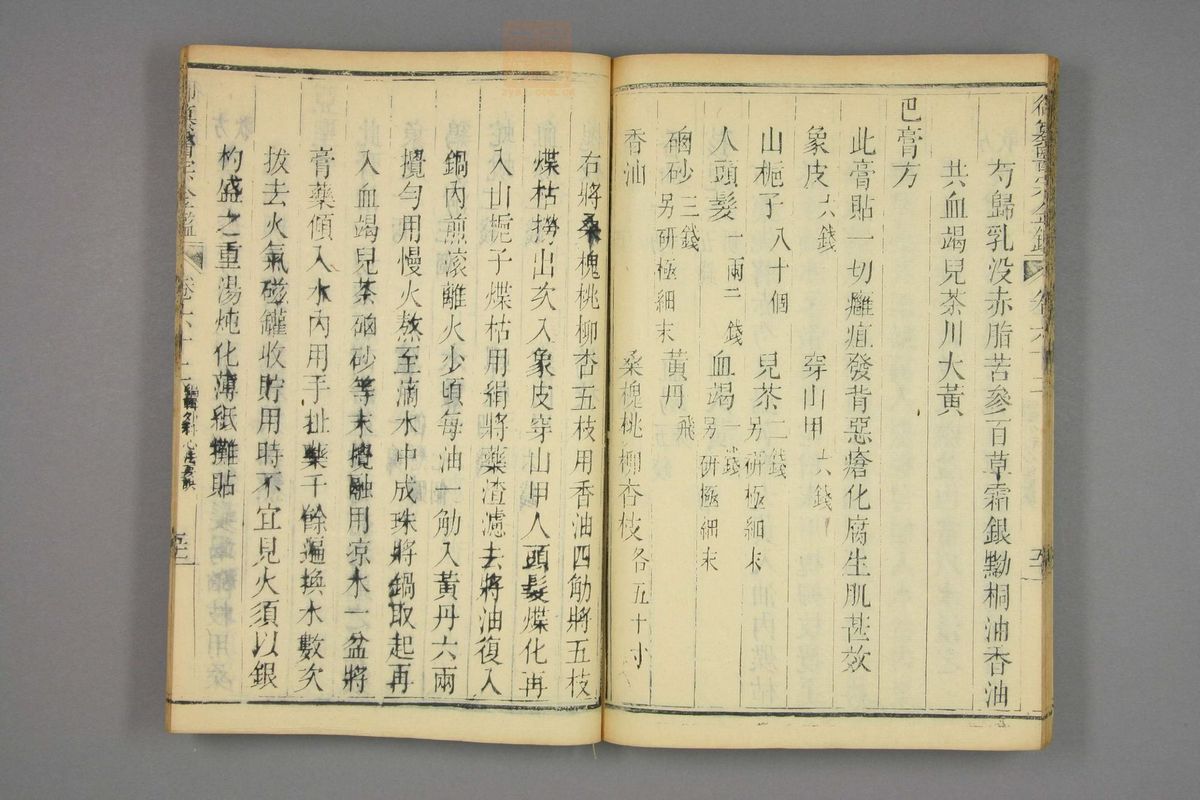 芍歸乳没赤脂苦參百草霜銀黝桐油香油
共血竭兒茶川大黃
巴膏方
此膏貼一切癰疽發背惡瘡化腐生肌甚效
象皮六錢 穿山甲六錢
山梔子八十個 兒茶二錢另研極細末
人頭髮一兩二錢 血竭一錢另研極細末
硇砂三錢另研極細末 黃丹飛
香油 桑槐桃柳杏枝各五十寸
右將桑槐桃柳杏五枝用香油四觔將五枝
煠枯撈出次入象皮穿山甲人頭髮煠化再
入山梔子煠枯用絹將藥渣濾去將油復入
鍋內煎滾離火少頃每油一觔入黃丹六兩
攪勻用慢火熬至滴水中成珠將鍋取起再
入血竭兒茶硇砂等末攪融用凉水一盆將
膏藥傾入水內用手扯藥千餘遍換水數次
拔去火氣磁罐收貯用時不宜見火須以銀
杓盛之重湯炖化薄紙攤貼